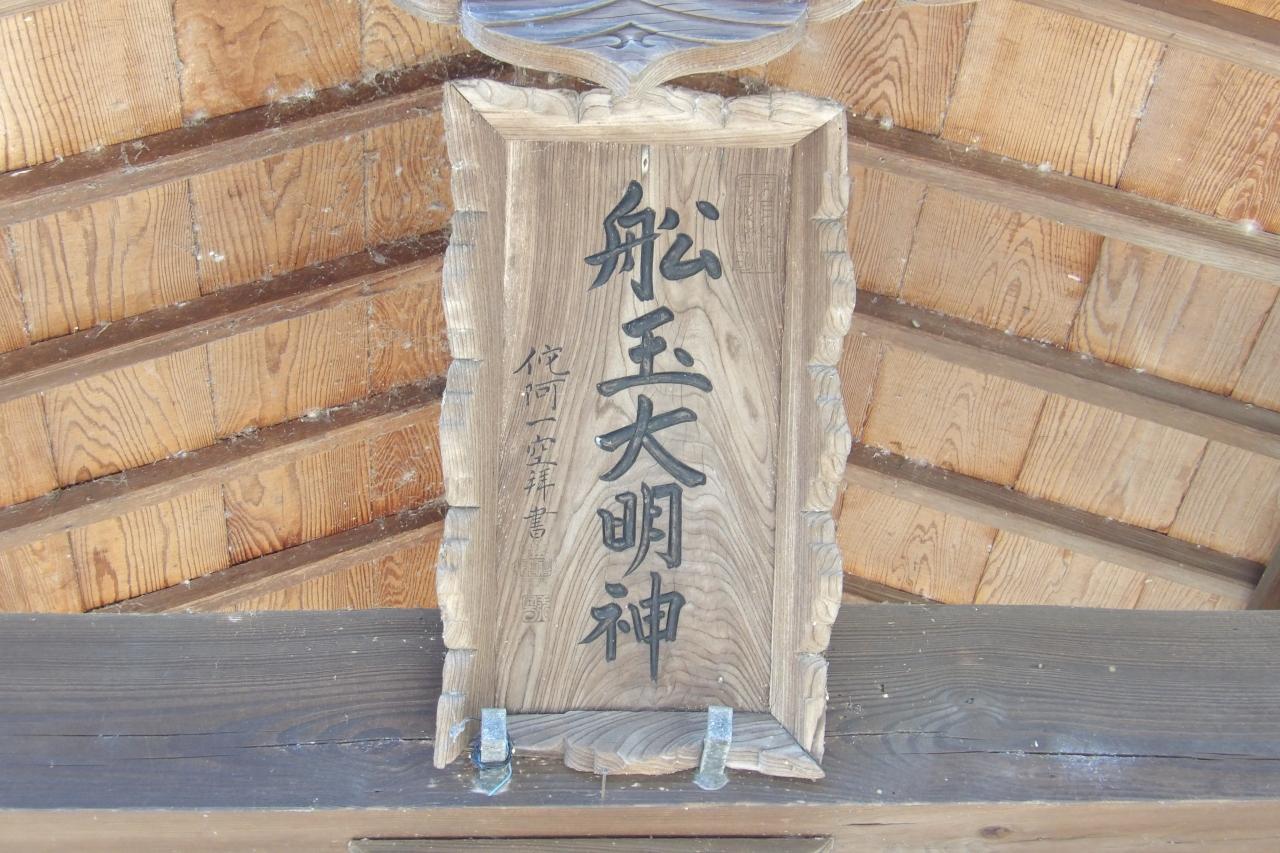 舩玉大明神
侘阿一空拜書